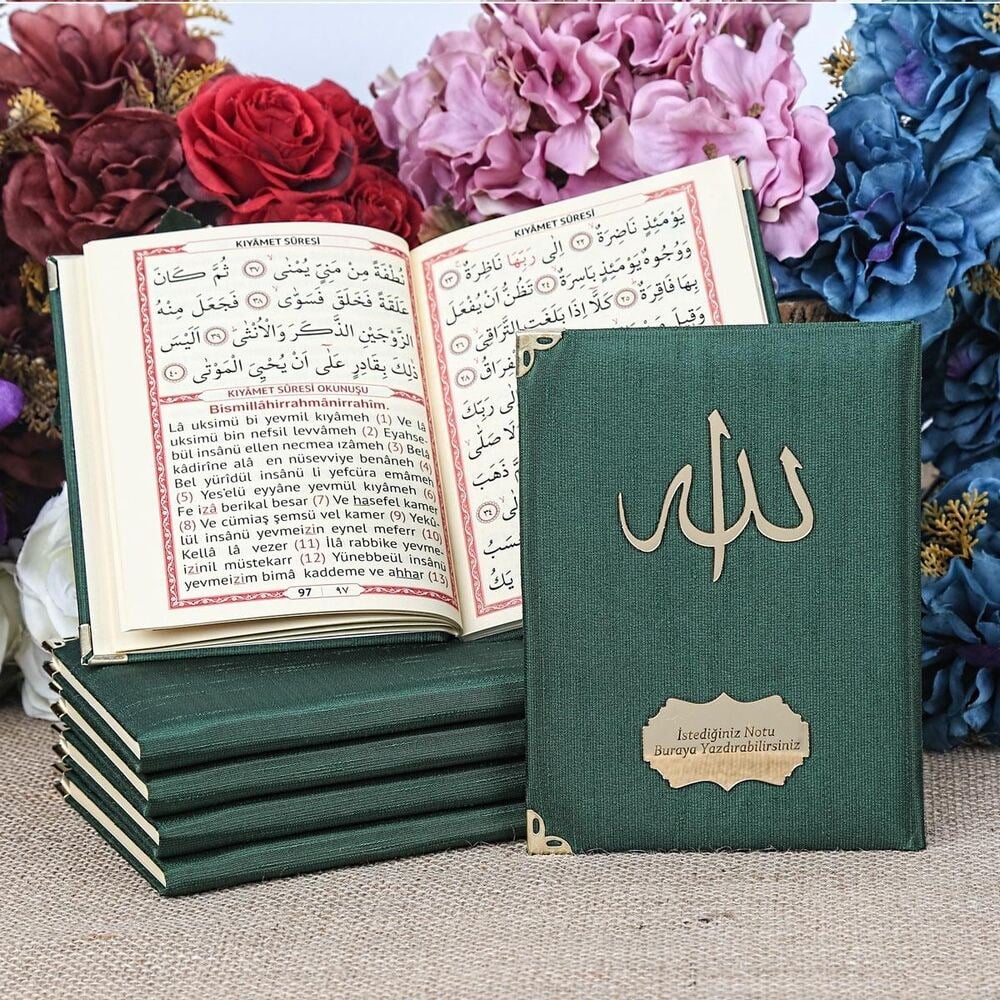 KIYÂMET SÛRESİ
نُطْفَةً مِنْ مَنِيٍّ يُمْنٰىۙ ﴿٣٧﴾ ثُمَّ كَانَ
عَلَقَةً فَخَلَقَ فَسَوّٰىۙ ﴿٣٨﴾ فَجَعَلَ مِنْهُ
الزَّوْجَيْنِ الذَّكَرَ وَالْاُنْثٰىۜ ﴿٣٩﴾ اَلَيْسَ
ذٰلِكَ بِقَادِرٍ عَلٰٓى اَنْ يُحْيِيَ الْمَوْتٰى ﴿٤٠﴾
KIYÂMET SÛRESİ OKUNUŞU
Bismillâhirrahmânirrahîm.
Lâ uksimü bi yevmil kıyâmeh (1) Ve lâ
uksimü bin nefsil levvâmeh (2) Eyahse-
bül insânü ellen necmea ızâmeh (3) Belâ
kâdirîne alâ en nüsevviye benâneh (4)
Bel yürîdül insânü li yefcüra emâmeh
(5) Yes'elü eyyâne yevmül kıyâmeh (6)
Fe izâ berikal besar (7) Ve hasefel kamer
(8) Ve cümiaş şemsü vel kamer (9) Yekû-
lül insânü yevmeizin eynel meferr (10)
Kellâ lâ vezer (11) İlâ rabbike yevme-
izinil müstekarr (12) Yünebbeül insânü
yevmeizim bimâ kaddeme ve ahhar (13)
97 ٩٧
KIYÂMET SÛRESİ
يَوْمَئِذٍ نَاضِرَةٌۙ ﴿٢٢﴾ اِلٰى رَبِّهَا نَاظِرَةٌۚ ﴿٢٣﴾
وَوُجُوهٌ يَوْمَئِذٍ بَاسِرَةٌۙ ﴿٢٤﴾ تَظُنُّ اَنْ يُفْعَلَ
بِهَا فَاقِرَةٌۜ ﴿٢٥﴾ كَلَّٓا اِذَا بَلَغَتِ التَّرَاقِيَۙ ﴿٢٦﴾
وَقِيلَ
فِرَاقُۙ ﴿٢٨﴾
اِلٰى رَبِّكَ
لَا صَلّٰىۙ
ذَهَبَ
﴿٣٤﴾
يَكُ
الله
İstediğiniz Notu
Buraya Yazdırabilirsiniz